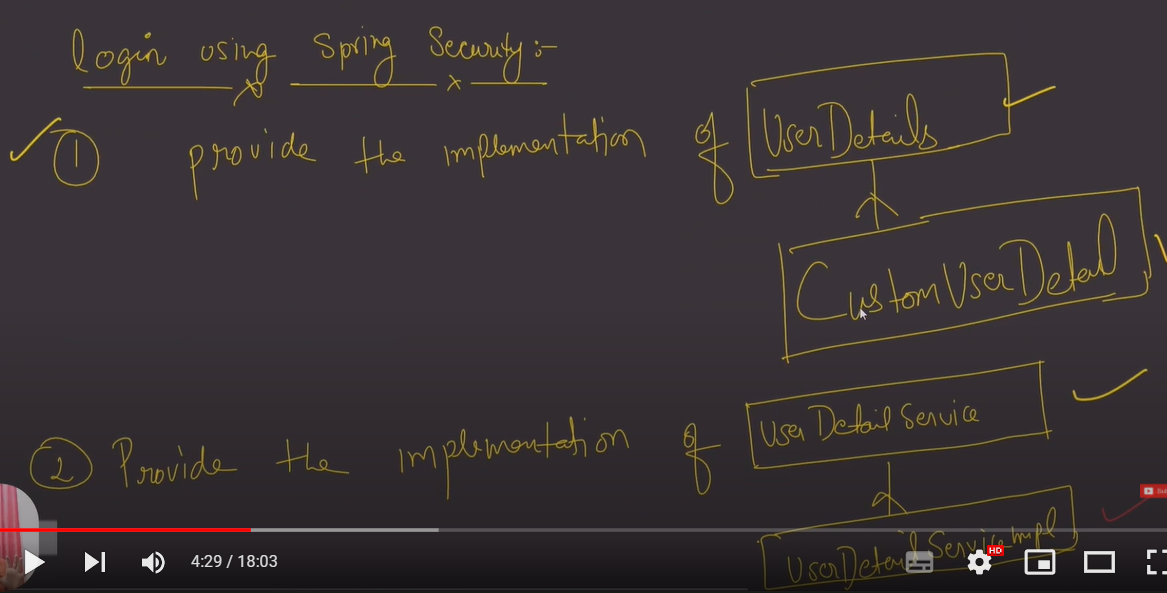 Login using Spring Security :-
① provide the implementation of UserDetails
CustomUserDetail
② Provide the implementation of User Detail Service
UserDetail Service Impl
4:29 / 18:03
HD